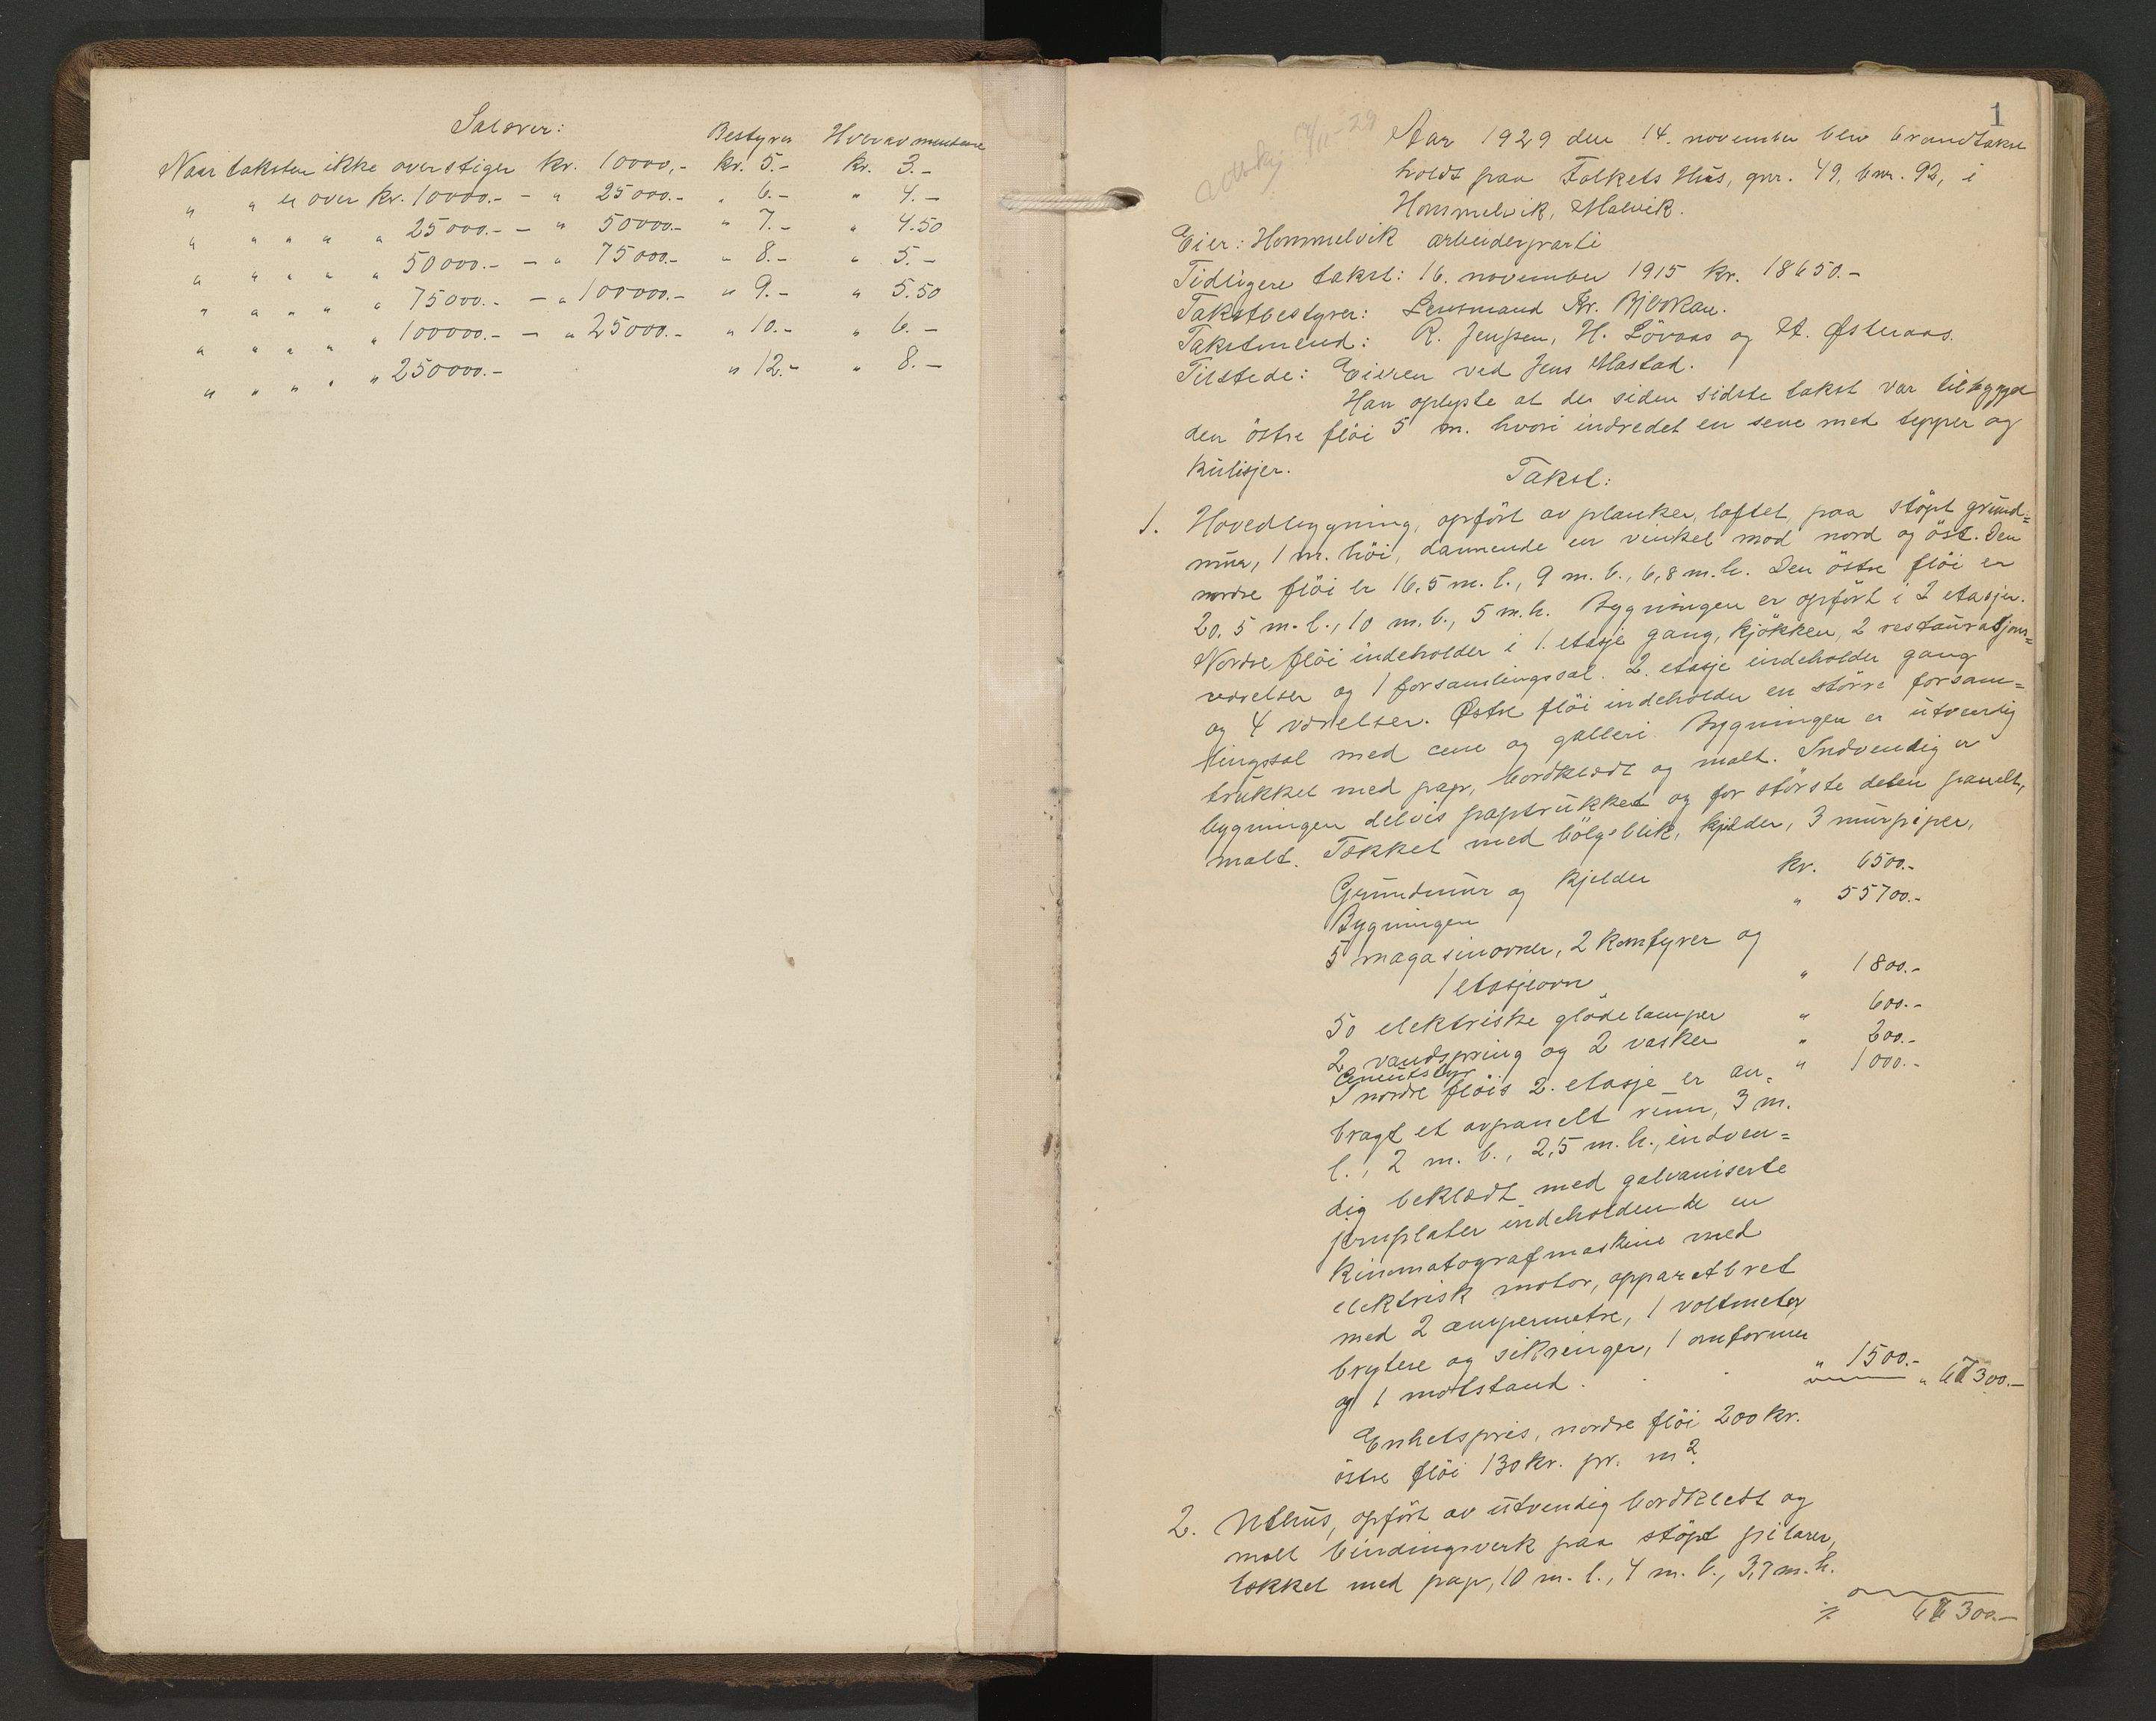 Salærer:
Bestyrer Hver av mendene
Naar taksten ikke overstiger kr. 10000,- kr. 5.- kr. 3.-
" " er over kr. 10000.- - " 25000.- " 6.- " 4.-
" " " " " 25000.- - " 50000.- " 7.- " 4.50
" " " " " 50000.- - " 75000.- " 8.- " 5.-
" " " " " 75000.- - " 100000.- " 9.- " 5.50
" " " " " 100000.- - " 25000.- " 10.- " 6.-
" " " " " 250000.- " 12.- " 8.-
1
Aar 1929 den 14. november blev brandtakst
holdt paa Folkets Hus, gnr. 49, bnr. 92, i
Hommelvik, Malvik.
Eier: Hommelvik arbeiderparti
Tidligere takst: 16. november 1915 kr. 18650.-
Takstbestyrer: Lensmand Kr. Bjerkan.
Takstmend: R. Jenssen, H. Lövaas og A. Østeraas.
Tilstede: Eieren ved Jens Mastad.
Han oplyste at der siden sidste takst var tilbygget
den östre flöi 5 m. hvori indredet en sene med tepper og
kulisjer.
Takst:
1. Hovedbygning, opfört av planker, laftet, paa stöpt grund=
mur, 1 m. höi, dannende en vinkel mod nord og öst. Den
nordre flöi er 16,5 m. l., 9 m. b., 6,8 m. h. Den östre flöi er
20,5 m. l., 10 m. b., 5 m. h. Bygningen er opfört i 2 etasjer.
Nordre flöi indeholder i 1. etasje gang, kjökken, 2 restaurasjons=
værelser og 1 forsamlingssal. 2. etasje indeholder gang
og 4 værelser. Østre flöi indeholder en större forsam=
lingssal med cene og galleri. Bygningen er utvendig
trukket med pap, bordklædt og malt. Indvendig er
bygningen delvis paptrukket og for störste delen panelt,
malt. Tækket med bölgeblik, kjelder, 3 murpiper,
Grundmur og kjelder kr. 6500.-
Bygningen " 55700.-
5 magasinovner, 2 komfyrer og
1 etasjeovn " 1800.-
50 elektriske glödelamper " 600.-
2 vandspring og 2 vasker " 200.-
Ceneutstyr " 1000.-
I nordre flöis 2. etasje er an=
bragt et avpanelt rum, 3 m.
l., 2 m. b., 2,5 m. h., indven=
dig beklædt med galvaniserte
jernplater indeholdende en
kinematografmaskine med
elektrisk motor, apparatbret
med 2 ampermetre, 1 voltmeter,
brytere og sikringer, 1 omformer
og 1 motstand. " 1500.- " 67300.-
Enhetspris, nordre flöi 200 kr.
östre flöi 130 kr. pr. m².
2. Uthus, opfört av utvendig bordklædt og
malt bindingsverk paa stöpt pilarer,
tækket med pap, 10 m. l., 4 m. b., 3,7 m. h.
67300.-